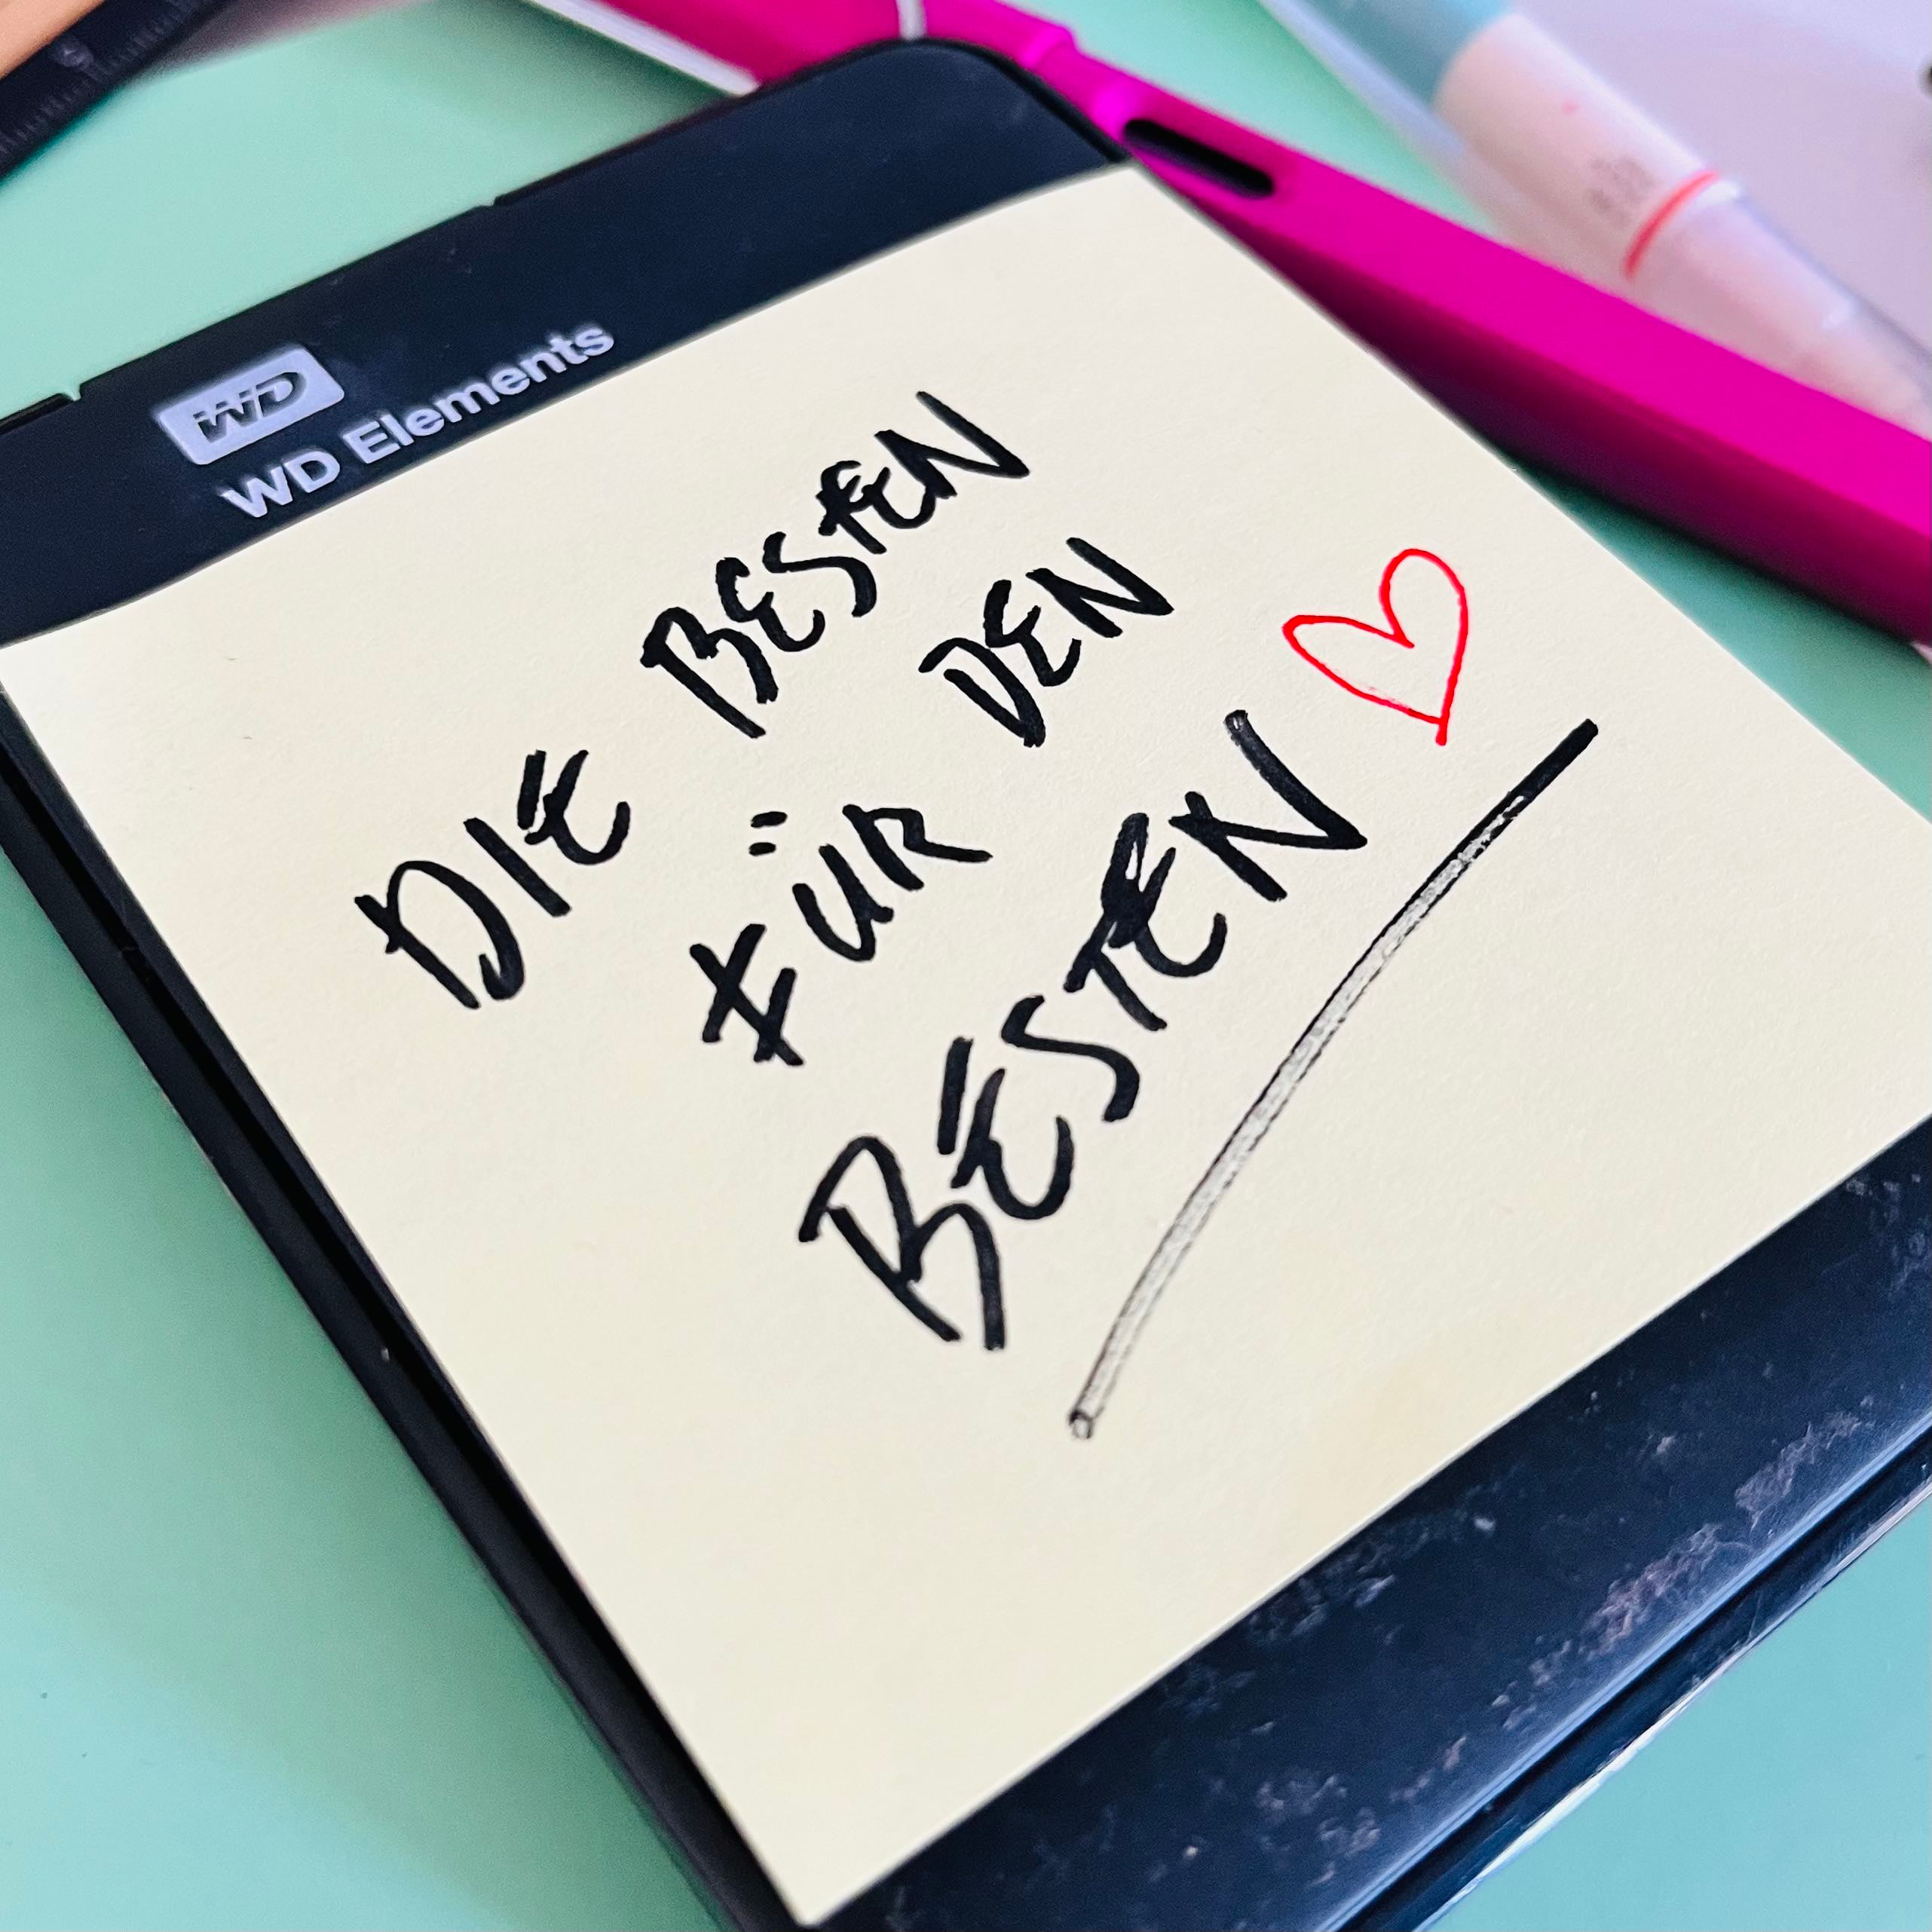 WD
WD Elements
DIE BESTEN
FÜR DEN
BESTEN